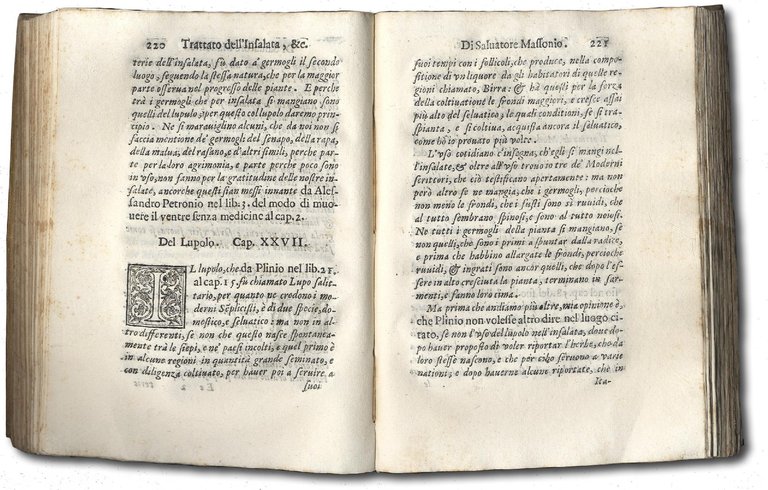 220 Trattato dell'Insalata, &c.
terie dell'insalata, fù dato a' germogli il secondo
luogo, seguendo la stessa natura, che per la maggior
parte osserua nel progresso delle piante. E perche
trà i germogli che per insalata si mangiano, sono
quelli del lupulo; per questo col lupulo daremo prin-
cipio. Ne si marauiglino alcuni, che da noi non si
faccia mentione de' germogli del senapo, della rapa,
della malua, del rafano, e d'altri simili, perche par-
te per la loro agrimonia, e parte perche poco sono
in vso, non fanno per la gratitudine delle nostre in-
salate, ancorche questi sian messi innante da Ales-
sandro Petronio nel lib. 3. del modo di muo-
uere il ventre senza medicine al cap. 2.
Del Lupolo. Cap. XXVII.
IL lupolo, che da Plinio nel lib. 21.
al cap. 15. fù chiamato Lupo salit-
tario, per quanto ne credono i mo-
derni Séplicisti, è di due specie, do-
mestico, e seluatico: ma non in al-
tro differenti, se non che questo nasce spontanea-
mente trà le siepi, e ne' paesi incolti, e quel primo è
in alcune regioni in quantità grande seminato, e
con diligenza coltiuato, per hauer poi a seruire a
Ee 2 suoi
Di Saluatore Massonio. 221
suoi tempi con i follicoli, che produce, nella compo-
sitione di vn liquore da gli habitatori di quelle re-
gioni chiamato, Birra: & hà questi per la forza
della coltiuatione le frondi maggiori, e cresce assai
più alto del seluatico; le quali conditioni, se si tra-
spianta, e si coltiua, acquista ancora il seluatico,
come hò io prouato più volte.
L'vso cotidiano c'insegna, ch'egli si mangi nel-
l'insalate, & oltre all'vso trouo io trè de' Moderni
scrittori, che ciò testificano apertamente: ma non
però altro se ne mangia, che i germogli, percioche
non meno le frondi, che i fusti sono sì ruuidi, che
al tutto sembrano spinosi, e sono al tutto noiosi.
Ne tutti i germogli della pianta si mangiano, se
non quelli, che sono i primi a spuntar dalla radice,
e prima che habbino allargate le frondi, percioche
ruuidi, & ingrati sono ancòr quelli, che dopo l'es-
sere in alto cresciuta la pianta, terminano in sar-
menti, e fanno lor cima.
Ma prima che andiamo più oltre, mia opinione è,
che Plinio non volesse altro dire nel luogo ci-
tato, se non l'vso del lupolo nell'insalata, doue do-
po hauer proposto di voler riportar l'herbe, che da
loro stesse nascono, e che per cibo seruono a varie
nationi; e dopo hauerne alcune riportate, che in
Ita-